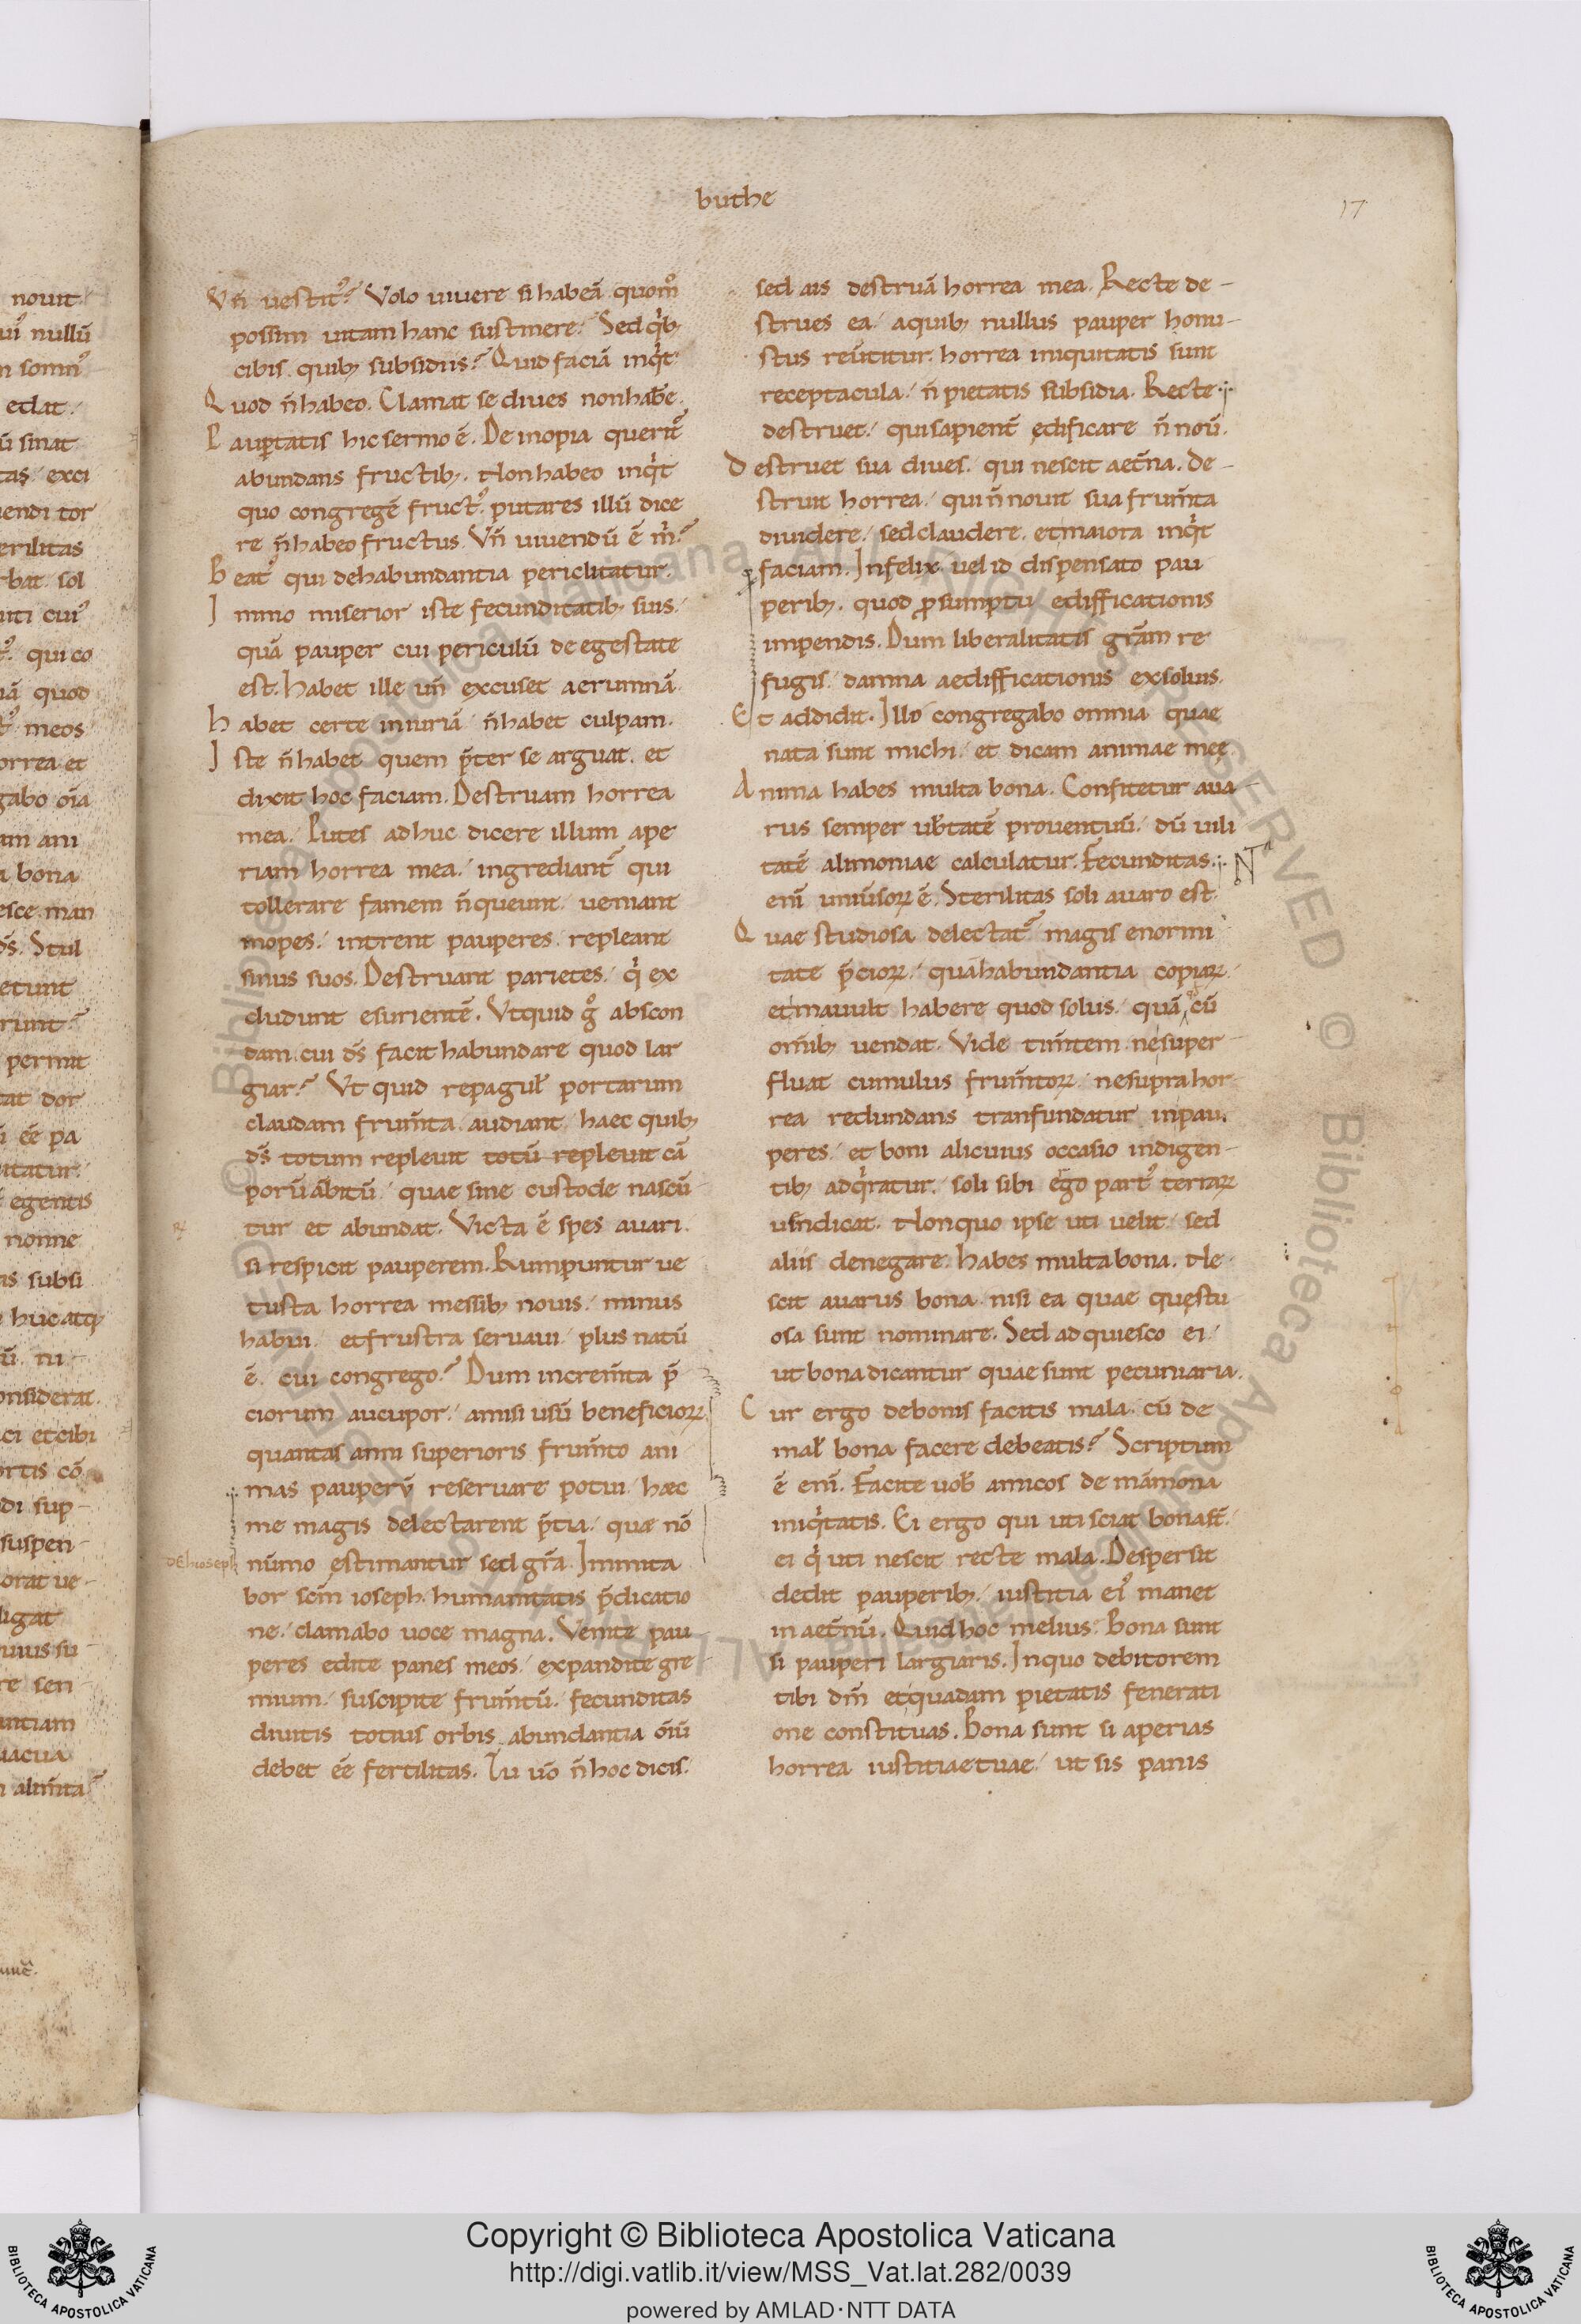 buthe
17
Vn̄ uestit᷒? Volo uiuere si habeā quom̊
possim uitam hanc sustinere. Sed qͥb;
cibis. quib; subsidiis? Quid faciā inqͥt
Quod n̄ habeo. Clamat se diues non habe᷒.
Paup̄tatis hic sermo ē. De inopia querit᷒
abundans fructib;. Non habeo inqͥt
quo congregē fruct᷒. putares illū dice
re n̄ habeo fructus. Vn̄ uiuendū ē m̄?
Beat᷒ qui dehabundantia periclitatur.
Immo miserior iste fecunditatib; suis.
quā pauper cui periculū de egestate
est. habet ille un̄ excuset aerumnā.
habet certe iniuriā n̄ habet culpam.
Iste n̄ habet quem p̄ter se arguat. et
dixit hoc faciam. Destruam horrea
mea. Putes adhuc dicere illum ape
riam horrea mea. ingrediant᷒ qui
tollerare famem n̄ queunt. ueniant
inopes. intrent pauperes. repleant
sinus suos. Destruant parietes. qͥ ex
cludunt esurientē. Vtquid gͦ abscon
dam. cui d̄s facit habundare quod lar
giar? Vt quid repagul̄ portarum
claudam frum̄ta. audiant haec quib;
d̄s totum repleuit totū repleuit cā
porū ābitū. quae sine custode nascū
tur et abundat. Victa ē spes auari.
si respicit pauperem. Rumpuntur ue
tusta horrea messib; nouis. minus
habui. et frustra seruaui. plus natū
ē. cui congrego? Dum increm̄ta p̄
ciorum aucupor. amisi usū beneficioꝝ.
quantas anni superioris frum̄to ani
mas pauperū reseruare potui. haec
me magis delectarent p̄tia. quae nō
nūmo ęstimantur sed gr̄a. Immita
de hioseph
bor scm̄ ioseph. humanitatis p̄dicatio
ne. clamabo uoce magna. Venite pau
peres edite panes meos. expandite gre
mium. suscipite frum̄tū. fecunditas
diuitis totius orbis abundantia ōiū
debet eē fertilitas. Tu uō n̄ hoc dicis.
sed ais destruā horrea mea. Recte de-
strues ea. aquib; nullus pauper honu-
stus reūtitur. horrea iniquitatis sunt
receptacula. n̄ pietatis subsidia. Recte
destruet. qui sapient᷒ ędificare n̄ noū.
Destruet sua diues. qui nescit aet̄na. de-
struit horrea. qui n̄ nouit sua frum̄ta
diuidere. sed claudere. et maiora inqͥt
faciam. Infelix. uel id dispensato pau
perib;. quod p̄sumptu edifficationis
impendis. Dum liberalitatis grām re
fugis. damna aedifficationis exsoluis.
Et addidit. Illo congregabo omnia quae
nata sunt michi. et dicam animae meę
Anima habes multa bona. Confitetur aua-
rus semper ub̄tatē prouentuū. dū uili
tatē alimoniae calculatur. Fecunditas
Nᵃ
enī uniūsoꝝ ē. Sterilitas soli auaro est.
Quae studiosa delectat᷒ magis enormi
tate p̄cioꝝ. quā habundantia copiaꝝ.
et mauult habere quod solus. quā cū
om̄ib; uendat. Vide tim̄tem ne super-
fluat cumulus frum̄toꝝ. ne supra hor
rea redundans tranfundatur in pau.
peres. et boni alicuius occasio indigen-
tib; adqͥratur. soli sibi ego part᷒ terraꝝ
uendicat. Non quo ipse uti uelit. sed
aliis denegare. habes multa bona. Ne
scit auarus bona nisi ea quae quęstu
osa sunt nominare. Sed adquiesco ei.
ut bona dicantur quae sunt pecuniaria.
Cur ergo debonis facitis mala. cū de
mal̄ bona facere debeatis? Scriptum
ē enī. Facite uob̄ amicos de māmona
iniqͥtatis. Ei ergo qui uti sciat bona st̄.
ei qͥ uti nescit recte mala. Despersit
dedit pauperib;. iustitia ei᷒ manet
in aet̄nū. Quid hoc melius. Bona sunt
si pauperi largiaris. In quo debitorem
tibi dm̄ et quadam pietatis fenerati
one constituas. Bona sunt si aperias
horrea iustitiae tuae. ut sis panis
Copyright © Biblioteca Apostolica Vaticana
http://digi.vatlib.it/view/MSS_Vat.lat.282/0039
powered by AMLAD·NTT DATA
BIBLIOTECA APOSTOLICA VATICANA
BIBLIOTECA APOSTOLICA VATICANA